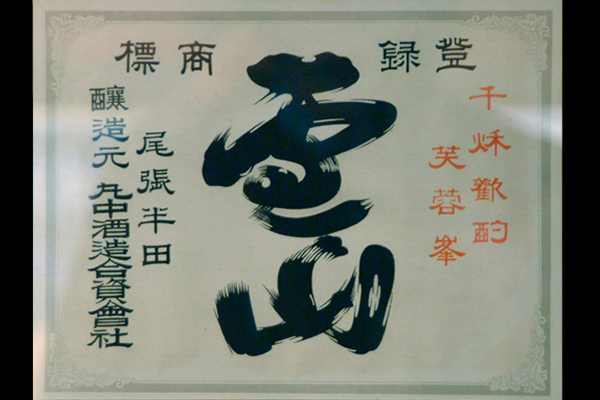 登錄商標
千秋歡酌
芙蓉峯
雪山
尾張半田
釀造元 丸中酒造合資會社